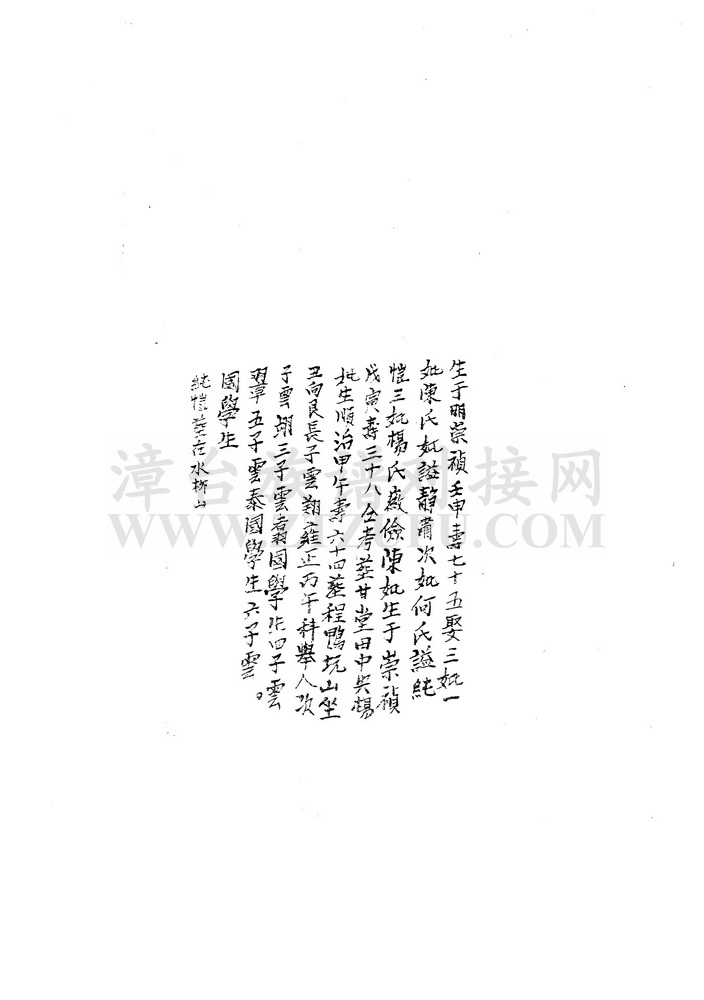 生于明崇禎壬申壽七十五娶三妣一
妣陳氏妣諡静肅次妣何氏諡純
愷三妣楊氏儉陳妣生于崇禎
戊寅壽三十八仝考塟甘堂田中央楊
妣生順治甲午壽六十四塟程鴨坑山坐
丑向艮長子雲翔雍正丙午科舉人次
子雲翊三子雲翥國學生四子雲
覃五子雲泰國學生六子雲
國學生
純愷塟在水柳山
漳台族谱对接网
WWW.ZTZUPU.COM